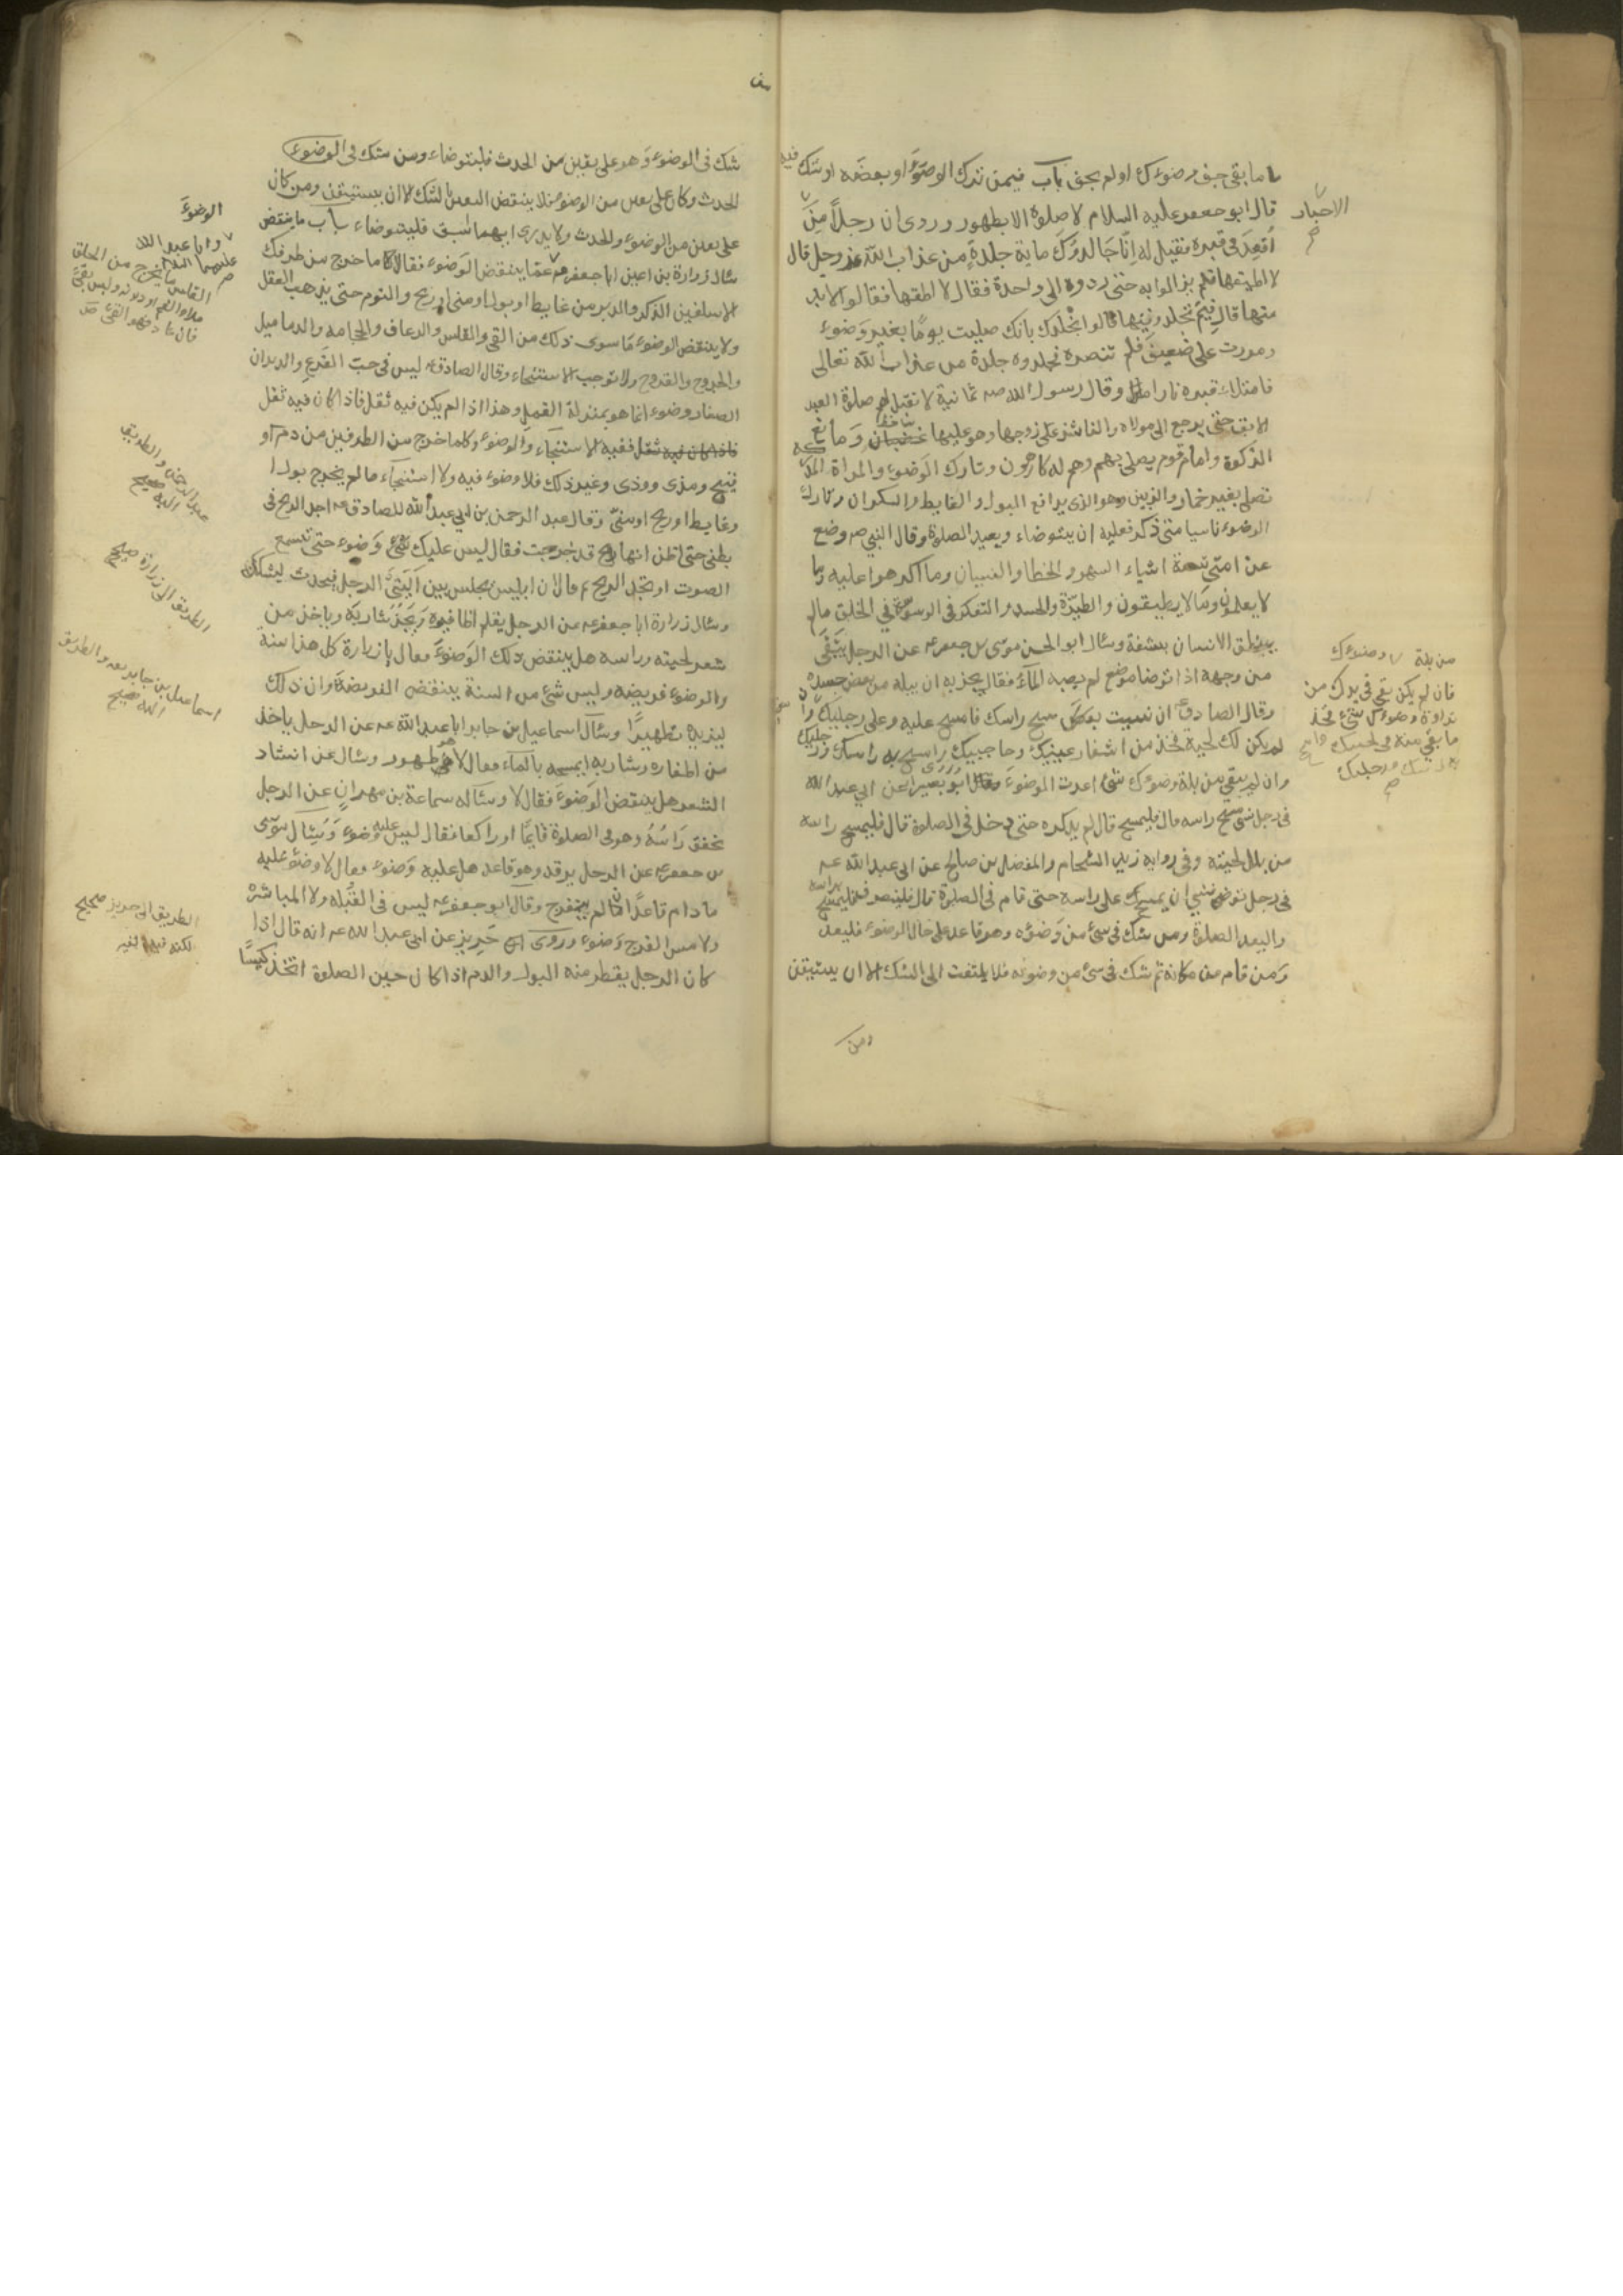 ما بقى جف وضوءك او لم يجف باب فيمن ترك الوضوء او بعضه او شك فيه
قال ابو جعفر عليه السلام لا صلوة الا بطهور وروى ان رجلا من
الاحبار
اقعد في قبره فقيل له انا جالدوك ماية جلدة من عذاب الله عز وجل قال
لا اطيقها فلم يزالوا به حتى ردوه الى واحدة فقال لا اطيقها فقالوا لا بد
منها قال فيم تجلدونيها قالوا نجلدك بانك صليت يوما بغير وضوء
ومررت على ضعيف فلم تنصره فجلدوه جلدة من عذاب الله تعالى
فامتلاء قبره نارا وقال رسول الله صه ثمانية لا تقبل لهم صلوة العبد
الابق حتى يرجع الى مولاه والناشز على زوجها وهو عليها وما نع
الزكوة وامام قوم يصلي بهم وهم له كارهون وتارك الوضوء والمراة المدركة
تصلى بغير خمار والزبين وهو الذى يدافع البول والغايط والسكران وتارك
الوضوء ناسيا متى ذكر فعليه ان يتوضاء ويعيد الصلوة وقال النبي صه وضع
عن امتى تسعة اشياء السهو والخطا والنسيان وما اكرهوا عليه وما
لا يعلمون وما لا يطيقون والطيرة والحسد والتفكر في الوسوسة في الخلق مالم
ينطق الانسان بشفة وسئال ابو الحسن موسى بن جعفر عه عن الرجل يبقى
من وجهه اذا توضا موضع لم يصبه المآء فقال يجزيه ان يبله من بعض جسده
وقال الصادق عه ان نسيت مسح راسك فامسح عليه وعلى رجليك
من بلة وضوءك
فان لم يكن بقى في يدك من
نداوة وضوءك شئ فخذ
ما بقى منه في لحيتك
وامسح به راسك ورجليك
لم يكن لك لحية فخذ من اشفار عينيك وحاجبيك وامسح به راسك ورجليك
وان لم يبقى من بلة وضوءك شئ اعدت الوضوء وروى ابو بصير عن ابي عبد الله
في رجل نسى مسح راسه قال فليمسح قال لم يذكره حتى دخل في الصلوة قال فليمسح راسه
من بلل لحيته وفي رواية زيد الشحام والمفضل بن صالح عن ابي عبد الله عه
في رجل توضى فنسي ان يمسح على راسه حتى قام في الصلوة قال فلينصرف فليمسح براسه
وليعد الصلوة ومن شك في شئ من وضوءه وهو قاعد على حال الوضوء فليعد
ومن قام من مكانه ثم شك في شئ من وضوئه فلا يلتفت الى الشك الا ان يستيقن
ومن
شك في الوضوء وهو على يقين من الحدث فليتوضاء ومن شك في الوضوء
الحدث وكان على يقين من الوضوء فلا ينقض اليقين بالشك الا ان يستيقن ومن كان
على يقين من الوضوء والحدث ولا يدرى ايهما اسبق فليتوضاء باب ما ينقض
الوضوء
سئال زرارة بن اعين ابا جعفر عه عما ينقض الوضوء فقالا ما خرج من طرفيك
وابا عبد الله
عليهما السلام
الاسفلين الذكر والدبر من غايط او بول او منى او ريح والنوم حتى يذهب العقل
ولا ينقض الوضوء ما سوى ذلك من القئ والقلس والرعاف والحجامه والدماميل
القلس ما يخرج من الحلق
ملاء الفم او دونه وليس بقئ
فان عاد فهو القئ
والجروح والقروح ولا توجب الاستنجاء وقال الصادق عه ليس في حب القرع والديدان
الصغار وضوء انما هو بمنزلة القمل وهذا اذا لم يكن فيه ثفل فاذا كان فيه ثفل
فاذا كان فيه ثفل ففيه الاستنجاء والوضوء وكلما خرج من الطرفين من دم او
قيح ومذى ووذى وغير ذلك فلا وضوء فيه ولا استنجاء مالم يخرج بول او
وغايط او ريح او منى وقال عبد الرحمن بن ابي عبد الله للصادق عه اجد الريح في
عبد الرحمن والطريق
اليه صحيح
بطنى حتى اظن انها قد خرجت فقال ليس عليك وضوء حتى تسمع
الصوت او تجد الريح ثم قال ان ابليس يجلس بين اليتى الرجل فيحدث ليشكك
وسئال زرارة ابا جعفر عه عن الرجل يقلم اظافيره ويجز شاربه وياخذ من
الطريق الى زرارة صحيح
شعر لحيته وراسه هل ينقض ذلك الوضوء فقال يا زرارة كل هذا سنة
والوضوء فريضه وليس شئ من السنة ينقض الفريضة وان ذلك
ليزيده تطهيرا وسئال اسماعيل بن جابر ابا عبد الله عه عن الرجل ياخذ
اسماعيل بن جابر والطريق
اليه صحيح
من اظفاره وشاربه ايمسحه بالمآء فقال لا هو طهور وسئال عن انشاد
الشعر هل ينقض الوضوء فقال لا وسئاله سماعة بن مهران عن الرجل
يخفق راسه وهو في الصلوة قايما او راكعا فقال ليس عليه وضوء وسئال موسى
بن جعفر عه عن الرجل يرقد وهو قاعد هل عليه وضوء فقال لا وضوء عليه
ما دام قاعدا ان لم ينفرج وقال ابو جعفر عه ليس في القبله ولا المباشرة
ولا مس الفرج وضوء وروى حريز عن ابي عبد الله عه انه قال اذا
الطريق الى حريز صحيح
كان الرجل يقطر منه البول والدم اذا كان حين الصلوة اتخذ كيسا